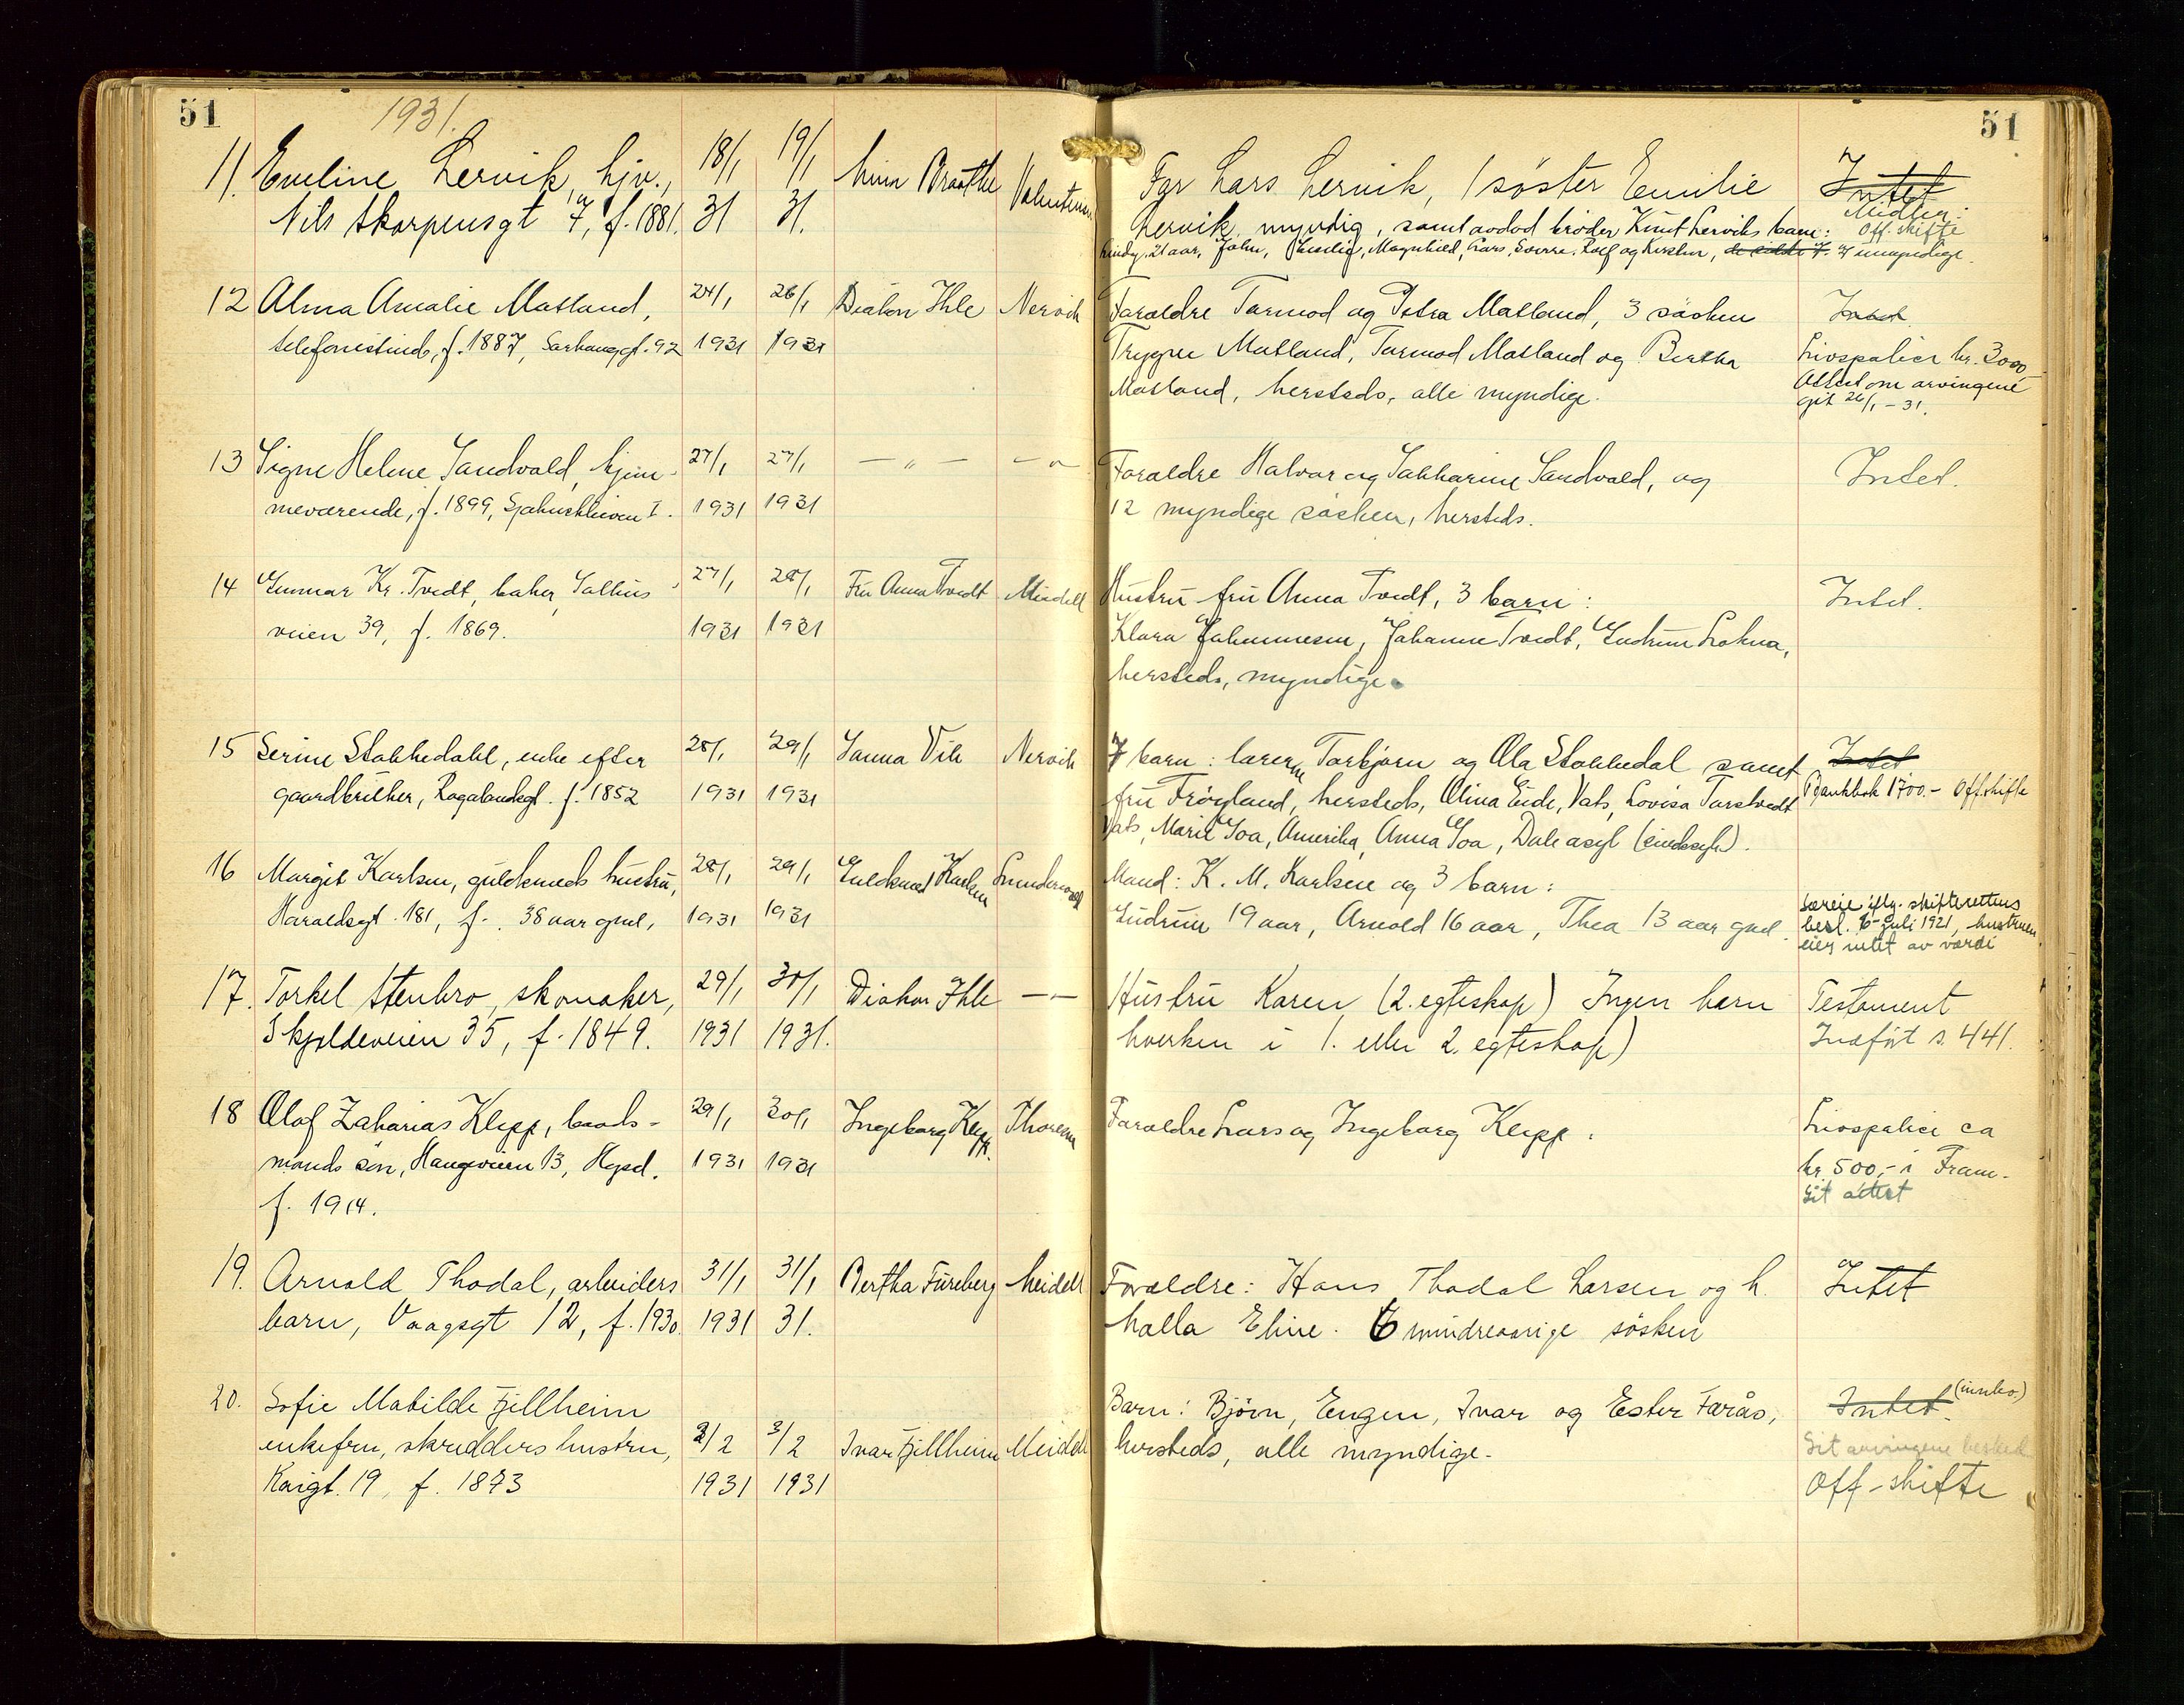 51
1931.
11. Eveline Lervik, hjv., 18/1 19/1
Nils Skorpensgt 7, f. 1881. 31 31.
12 Alma Amalie Matland, 24/1 26/1 Diakon Ihle Nervik
telefonistinde, f. 1887, Sørhauggt. 92 1931 1931
13 Signe Helene Sandvold, hjem- 27/1 27/1 — „ — — „ —
meværende, f. 1899, I. 1931 1931
14 Gunnar Kr. Tvedt, baker, Salhus- 27/1 28/1 Fru Anna Tvedt Meidell
veien 39, f. 1869. 1931 1931
15 Serine Stakkedahl, enke efter 28/1 29/1 Sanna Vik Nervik
gaardbruker, Rogalandsgt. f. 1852 1931 1931
16 Margit Karlsen, guldsmeds hustru, 28/1 29/1 Guldsmed Karlsen
Haraldsgt. 181, f. 38 aar gml, 1931 1931
17. Torkel Stenbro, skomaker, 29/1 30/1 Diakon Ihle — —
Skjoldeveien 35, f. 1849. 1931 1931.
18 Olaf Zakarias Klepp, baads- 29/1 30/1 Ingeborg Klepp. Thorsen
mands søn, Haugeveien 13, Hgsd. 1931 1931
f. 1914.
19. Arnold Thodal, arbeiders 31/1 31/1 Bertha Fureberg Meidell
barn, Vaagsgt 12, f. 1930 1931 31.
20. Sofie Matilde Fjellheim
enkefru, skredders hustru, 2/2 3/2 Ivar Fjellheim Meidell
Kaigt. 19, f. 1873 1931 1931
51
Far Lars Lervik, 1 søster Emilie Intet
Lervik, myndig, samt avdød broder Knut Lerviks barn: Midler: Off. skifte
21 aar, John, Magnhild, Lars, Sverre, Rolf og Kirsten, umyndige.
Forældre Tormod og Petra Matland, 3 søsken Intet
Trygve Matland, Tormod Matland og Bertha Livspolice kr. 3000
Matland, hersteds, alle myndige. Attest om arvingene
git 26/1 - 31.
Forældre Halvor og Sakkarine Sandvold, og Intet.
12 myndige søsken, hersteds.
Hustru fru Anna Tvedt, 3 barn: Intet.
Klara Johannesen, Johanne Tvedt, Gudrun
hersteds, myndige.
7 barn: lærerne Torbjørn og Ola Stakkedal samt Intet
fru Frøyland, hersteds, Olina Eide, Vats, Lovisa Bankbok 1700.- Off. skifte
Vats, Marie Goa, Amerika, Anna Goa, Dale asyl (sindssyk).
Mand: K. M. Karlsen og 3 barn:
Gudrun 19 aar, Arnold 16 aar, Thea 13 aar gml. Særeie iflg. skifterettens
besl. 6 juli 1921, hustruen
eier intet av værdi
Hustru Karen (2. egteskap) Ingen barn Testament
hverken i 1. eller 2. egteskap) Indført s. 441.
Forældre Lars og Ingeborg Klepp. Livspolice ca
kr. 500,- i Fram-
Git attest
Forældre: Hans Thodal Larsen og h. Intet
Malla Eline. 6 mindreaarige søsken
Barn: Bjørn, Eugen, Ivar og Ester Farås, Intet (innbo.)
hersteds, alle myndige. Git arvingene besked
Off-skifte